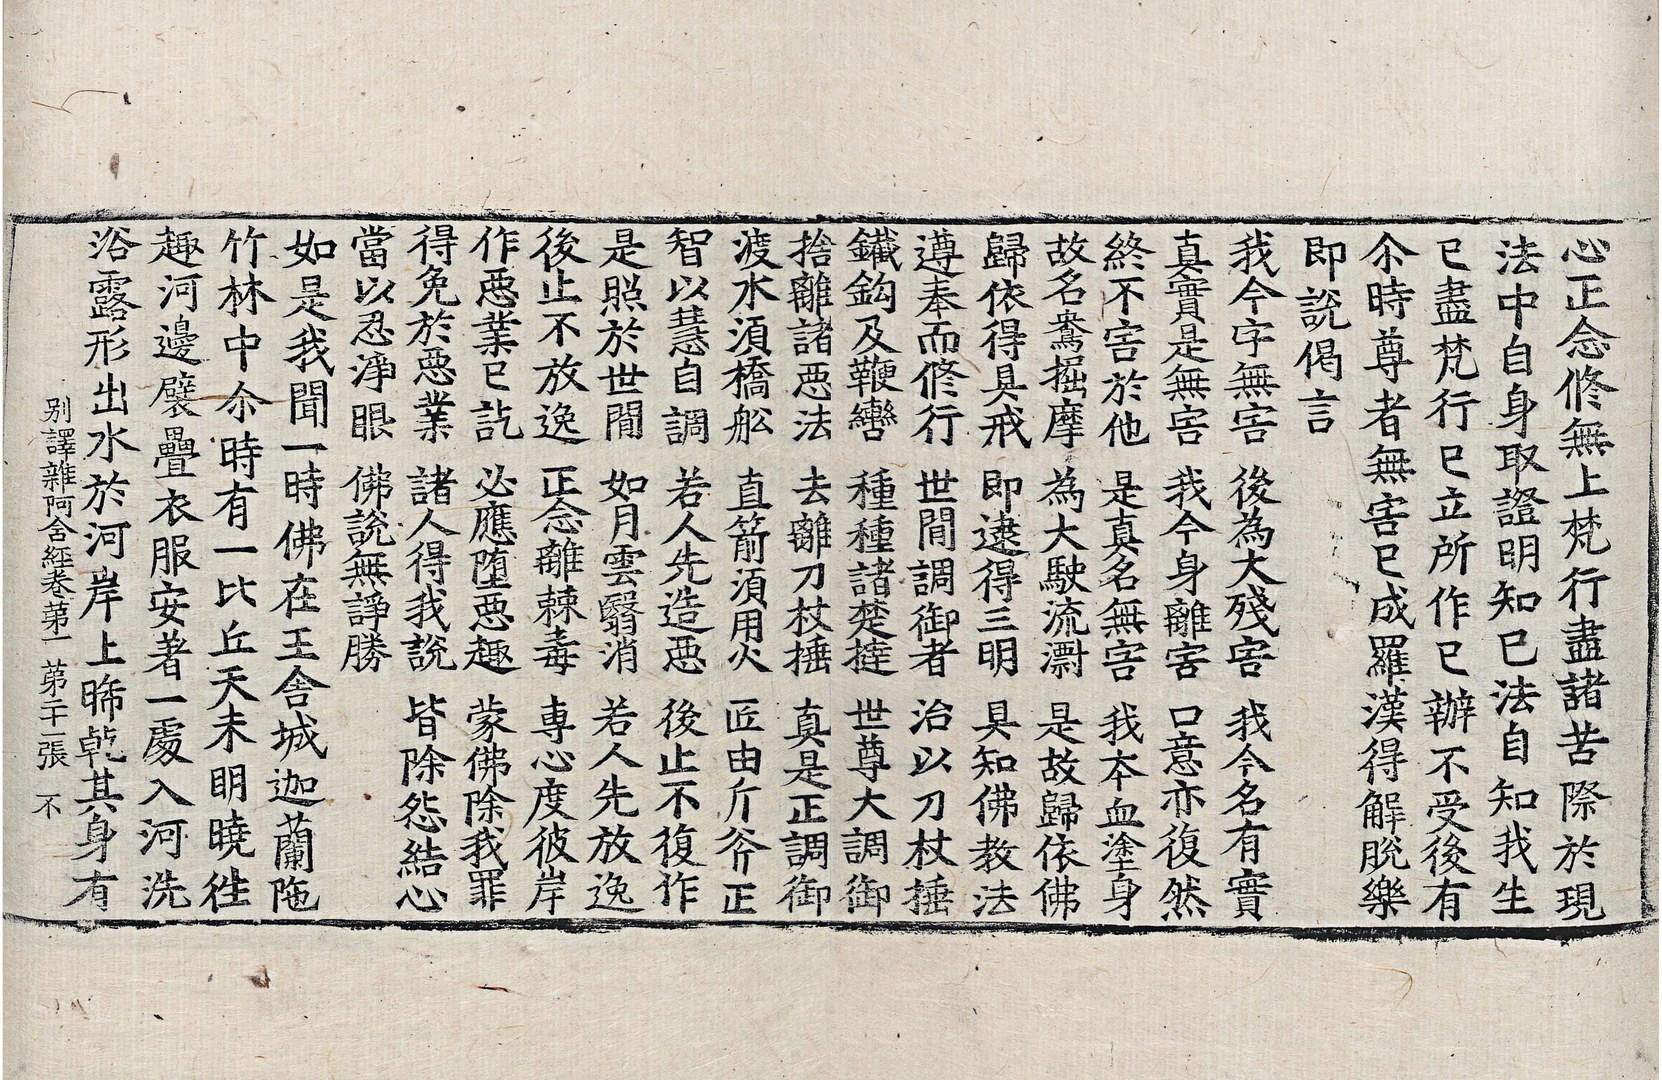 心正念修無上梵行盡諸苦際於現
法中自身取證明知已法自知我生
已盡梵行已立所作已辦不受後有
尒時尊者無害已成羅漢得解脫樂
即說偈言
我今字無害 後為大殘害 我今名有實
真實是無害 我今身離害 口意亦復然
終不害於他 是真名無害 我本血塗身
故名鴦掘摩 為大駛流㵱 是故歸依佛
歸依得具戒 即逮得三明 具知佛教法
遵奉而修行 世間調御者 治以刀杖捶
鐵鈎及鞭轡 種種諸楚撻 世尊大調御
捨離諸惡法 去離刀杖捶 真是正調御
渡水須橋舩 直箭須用火 匠由斤斧正
智以慧自調 若人先造惡 後止不復作
是照於世間 如月雲翳消 若人先放逸
後止不放逸 正念離棘毒 專心度彼岸
作惡業已訖 必應墮惡趣 蒙佛除我罪
得免於惡業 諸人得我說 皆除怨結心
當以忍淨眼 佛說無諍勝
如是我聞一時佛在王舍城迦蘭陁
竹林中尒時有一比丘天未明曉徃
趣河邊襞疊衣服安著一處入河洗
浴露形出水於河岸上晞乾其身有
別譯雜阿含經卷第一 第二十一張 不